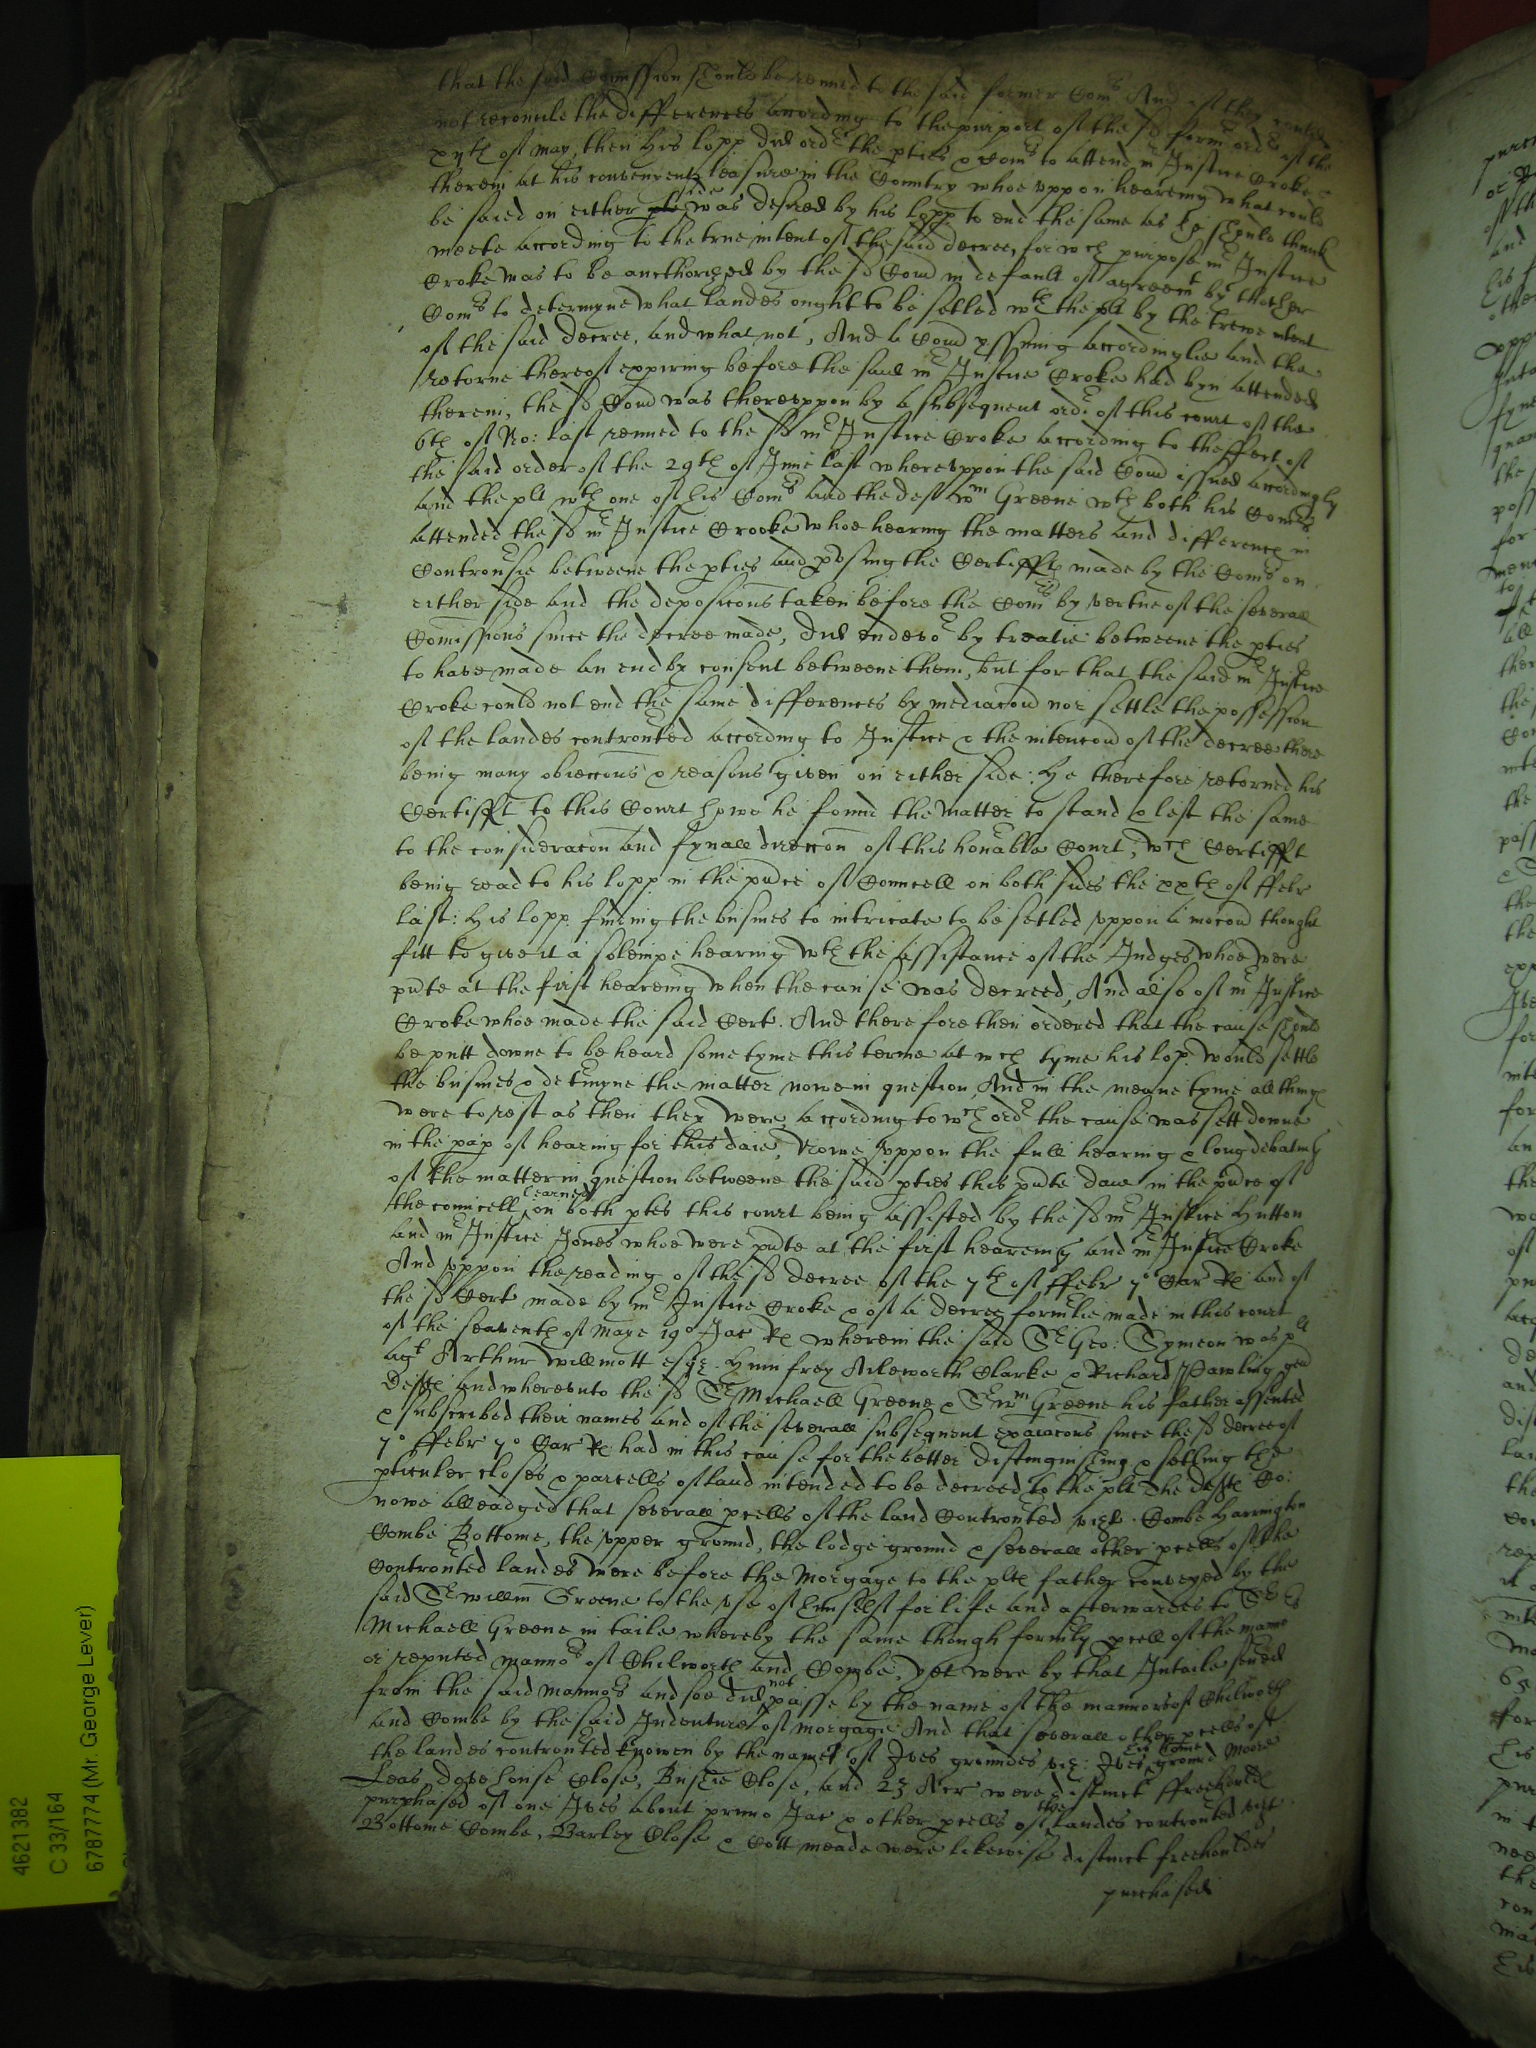 that the said Comission should be renued to the said former Comrs And if they could
not reconcile the differences according to the purport of the sd former ordr of the
xyth of May, then his lopp did ordr the pties & Comrs to attend mr Justice Croke
therein at his convenyent leasure in the Countrey whoe vppon heareing what could
be saied on either side was desired by his lopp to end the same as he should thinke
meete according to the true intent of the said decree, for wch purpose mr Justice
Croke was to be aucthorized by the sd Comd in default of agreemt by thother
Comrs to determyne what landes ought to be setled wth the plt by the trewe intent
of the said decree, and what not, And a Comd yssuing accordinglie and the
retorne thereof expiring before the said mr Justice Croke had byn attended
therein, the sd Comd was therevppon by a subsequent ordr of this court of the
6th of No: last renued to the sd mr Justice Croke according to theffect of
the said order of the 29th of June last wherevppon the said Comd issued accordingly
And the plt wth one of his Comrs and the deft wm Greene wth both his Comrs
attended the sd mr Justice Crooke whoe hearing the matters and differencs in
Controusie betweene the pties and pvsing the Certiffts made by the Comrs on
either side and the deposicons taken before the Comrs by vertue of the severall
Comissions since the decree made, did endevor by treatie betweene the pties
to have made an end by consent betweene them, but for that the said mr Justice
Croke could not end the same differences by mediacon nor settle the possession
of the landes controuted according to Justice & the intencon of the decree there
being many obieccons & reasons given on either side: He therefore retorned his
Certifft to this Court howe he found the Matter to stand & left the same
to the consideracon and fynall direccon of this honable Court, wch Certifft
being read to his lopp in the pndce of Councell on both sides the xxth of ffebr
last: His lopp finding the busines to intricate to be setled vppon a mocon thought
fitt to give it a solempe hearing wth the assistance of the Judges whoe were
pnte at the first heareing when the cause was decreed, And also of mr Justice
Croke whoe made the said Cert. And therefore then ordered that the cause should
be putt downe to be heard some tyme this terme at wch tyme his lop would settle
the busines & detmyne the matter nowe in question, And in the meane tyme all things
were to rest as then they were, according to wch ordr the cause was sett downe
in the pap of hearing for this daie, Nowe vppon the full hearing & long debating
of the matter in question betweene the said pties this pnte daie in the pndce of
the councell learned on both ptes this court being assisted by the sd mr Justice Hutton
and mr Justice Jones whoe were pnte at the first heareing and mr Justice Croke
And vppon the reading of the sd decree of the 7th of ffebr 7o Car Rs and of
the sd Cert made by mr Justice Croke & of a decree formlie made in this court
of the seaventh of Maye 19o Jac Rs wherein the said Sr Geo: Symeon was plt
agt Arthur Willmott esqr. Humfrey Aileworth Clarke & Richard Pawling gen
Defts and wherevnto the sd Sr Michaell Greene & Sr wm Greene his father assented
& subscribed their names and of the severall subsequent exaiacons since the sd decree of
7o ffebr 7o Car Rs had in this cause for the better distinguishing & setling the
pticuler closes & parcells of land intended to be decreed to the plt The defts Co:
nowe alleadged that severall pcells of the land Controuted vizt. Combe Harrington
Combe Bottome, the vpper ground, the lodge ground & severall other pcells of the
Controuted landes were before the Morgage to the plts father conveyed by the
said Sr Willm Greene to the vse of himselfe for life and afterwardes to Sr
Michaell Greene in taile whereby the same though formly pcell of the mannor
or reputed mannors of Chilworth and Combe, yet were by that Intaile seued
from the said Mannors and soe did not passe by the name of the mannors of Chilworth
and Combe by the said Indenture of morgage And that severall other pcells of
the landes controuted knowen by the names of Ives groundes viz: Ives his home ground Moore
Leas dove house Close, Bushie Close, and 23 Acr were distinct ffreehould
purchased of one Ives about primo Jac & other pcells of the landes controuted vizt
Bottome Combe, Barley Close & Cott meade were likewise distinct freehouldes
purchased
4621382
C 33/164
6787774 (Mr. George Lever)